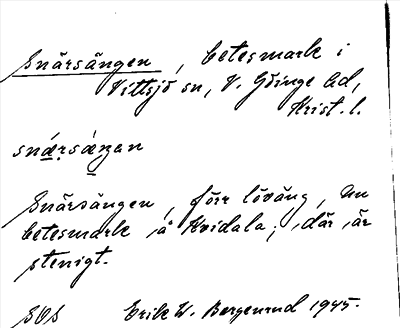 Snärsängen, betesmark i
Vittsjö sn, V. Göinge hd,
Krist. l.
snǽ̠r̥sæ̠̀ŋan
Snärsängen, förr löväng, nu
betesmark å Hvidala; där är
stenigt.
SOS Erik W. Bergenrud 1945.